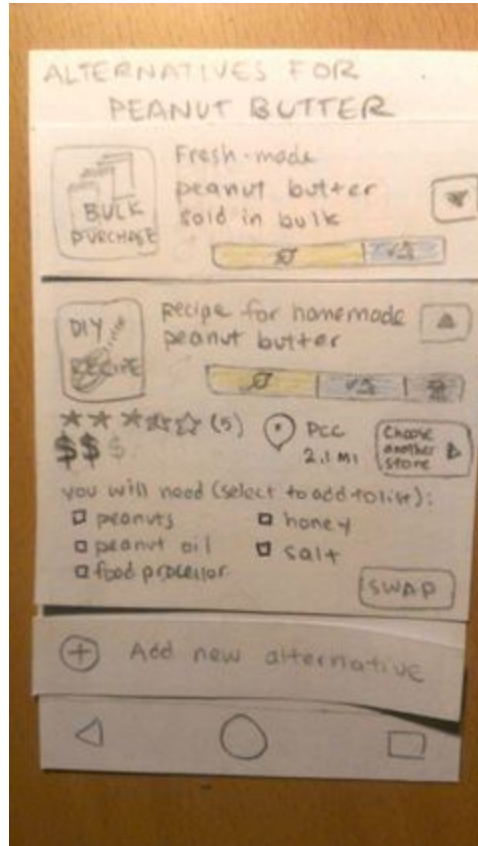 ALTERNATIVES FOR
PEANUT BUTTER
BULK
PURCHASE
Fresh-made
peanut butter
sold in bulk
DIY
RECIPE
Recipe for homemade
peanut butter
(5)
$$$
PCC
2.1 MI
Choose
another
store
you will need (select to add to list):
peanuts
honey
peanut oil
salt
food processor
SWAP
Add new alternative